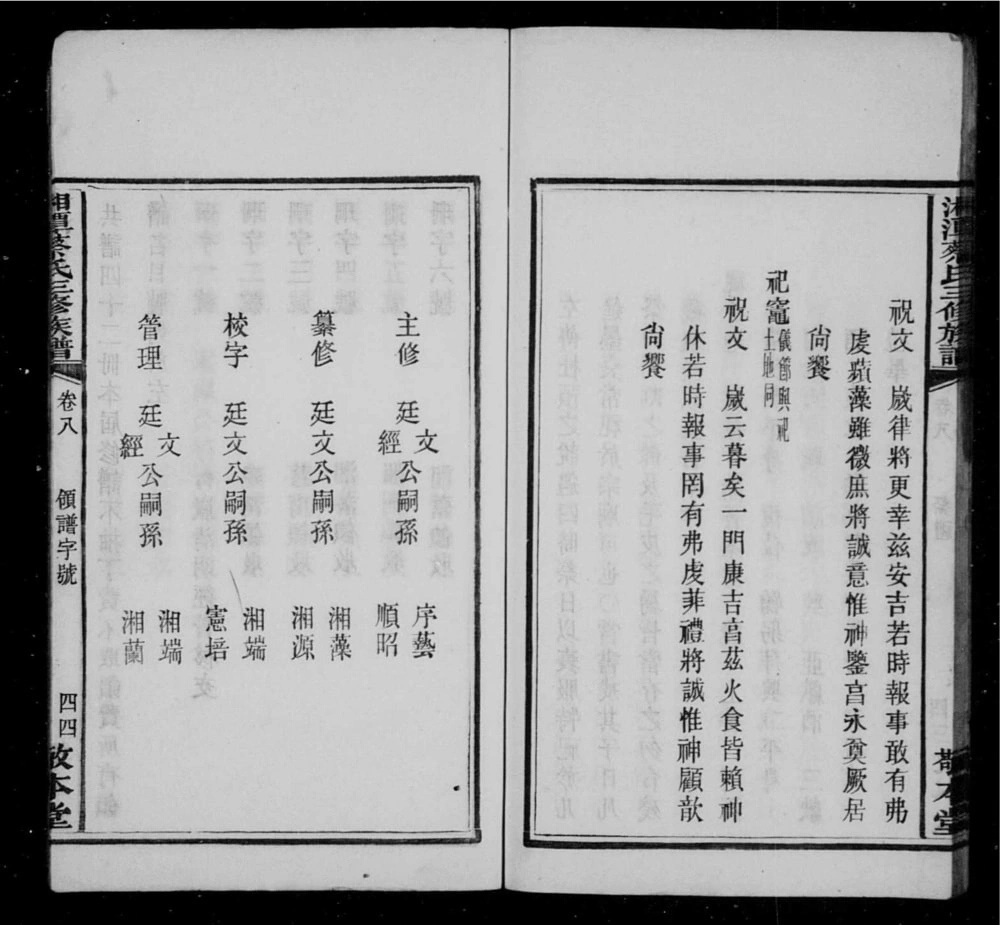 祝文　歲律將更幸茲安吉若時報事敢有弗
虔蘋藻雖微庶將誠意惟神鑒亯永奠厥居
尚饗
祀竈儀節與祀土地同
祝文　歲云暮矣一門康吉亯茲火食皆賴神
休若時報事罔有弗虔菲禮將誠惟神顧歆
尚饗
主修　廷文經公嗣孫　序藝　順昭
纂修　廷文公嗣孫　湘藻　湘源
校字　廷文公嗣孫　湘端　憲培
管理　廷文經公嗣孫　湘端　湘蘭
湘潭蔡氏三修族譜　卷八　領譜字號　四四　敬本堂